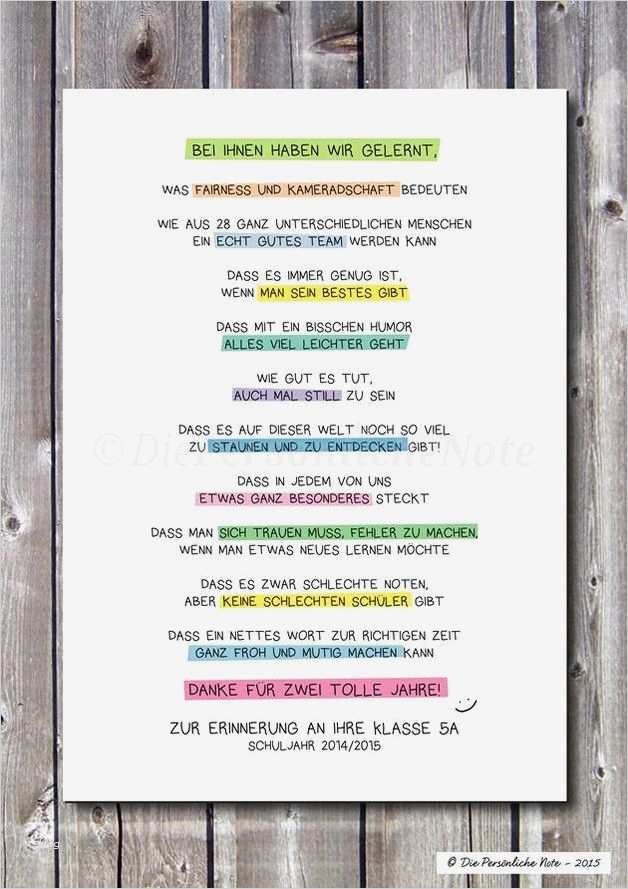 BEI IHNEN HABEN WIR GELERNT,
WAS FAIRNESS UND KAMERADSCHAFT BEDEUTEN
WIE AUS 28 GANZ UNTERSCHIEDLICHEN MENSCHEN
EIN ECHT GUTES TEAM WERDEN KANN
DASS ES IMMER GENUG IST,
WENN MAN SEIN BESTES GIBT
DASS MIT EIN BISSCHEN HUMOR
ALLES VIEL LEICHTER GEHT
WIE GUT ES TUT,
AUCH MAL STILL ZU SEIN
DASS ES AUF DIESER WELT NOCH SO VIEL
ZU STAUNEN UND ZU ENTDECKEN GIBT!
©DiePersönlicheNote
DASS IN JEDEM VON UNS
ETWAS GANZ BESONDERES STECKT
DASS MAN SICH TRAUEN MUSS, FEHLER ZU MACHEN,
WENN MAN ETWAS NEUES LERNEN MÖCHTE
DASS ES ZWAR SCHLECHTE NOTEN,
ABER KEINE SCHLECHTEN SCHÜLER GIBT
DASS EIN NETTES WORT ZUR RICHTIGEN ZEIT
GANZ FROH UND MUTIG MACHEN KANN
DANKE FÜR ZWEI TOLLE JAHRE!
ZUR ERINNERUNG AN IHRE KLASSE 5A
SCHULJAHR 2014/2015
© Die Persönliche Note - 2015